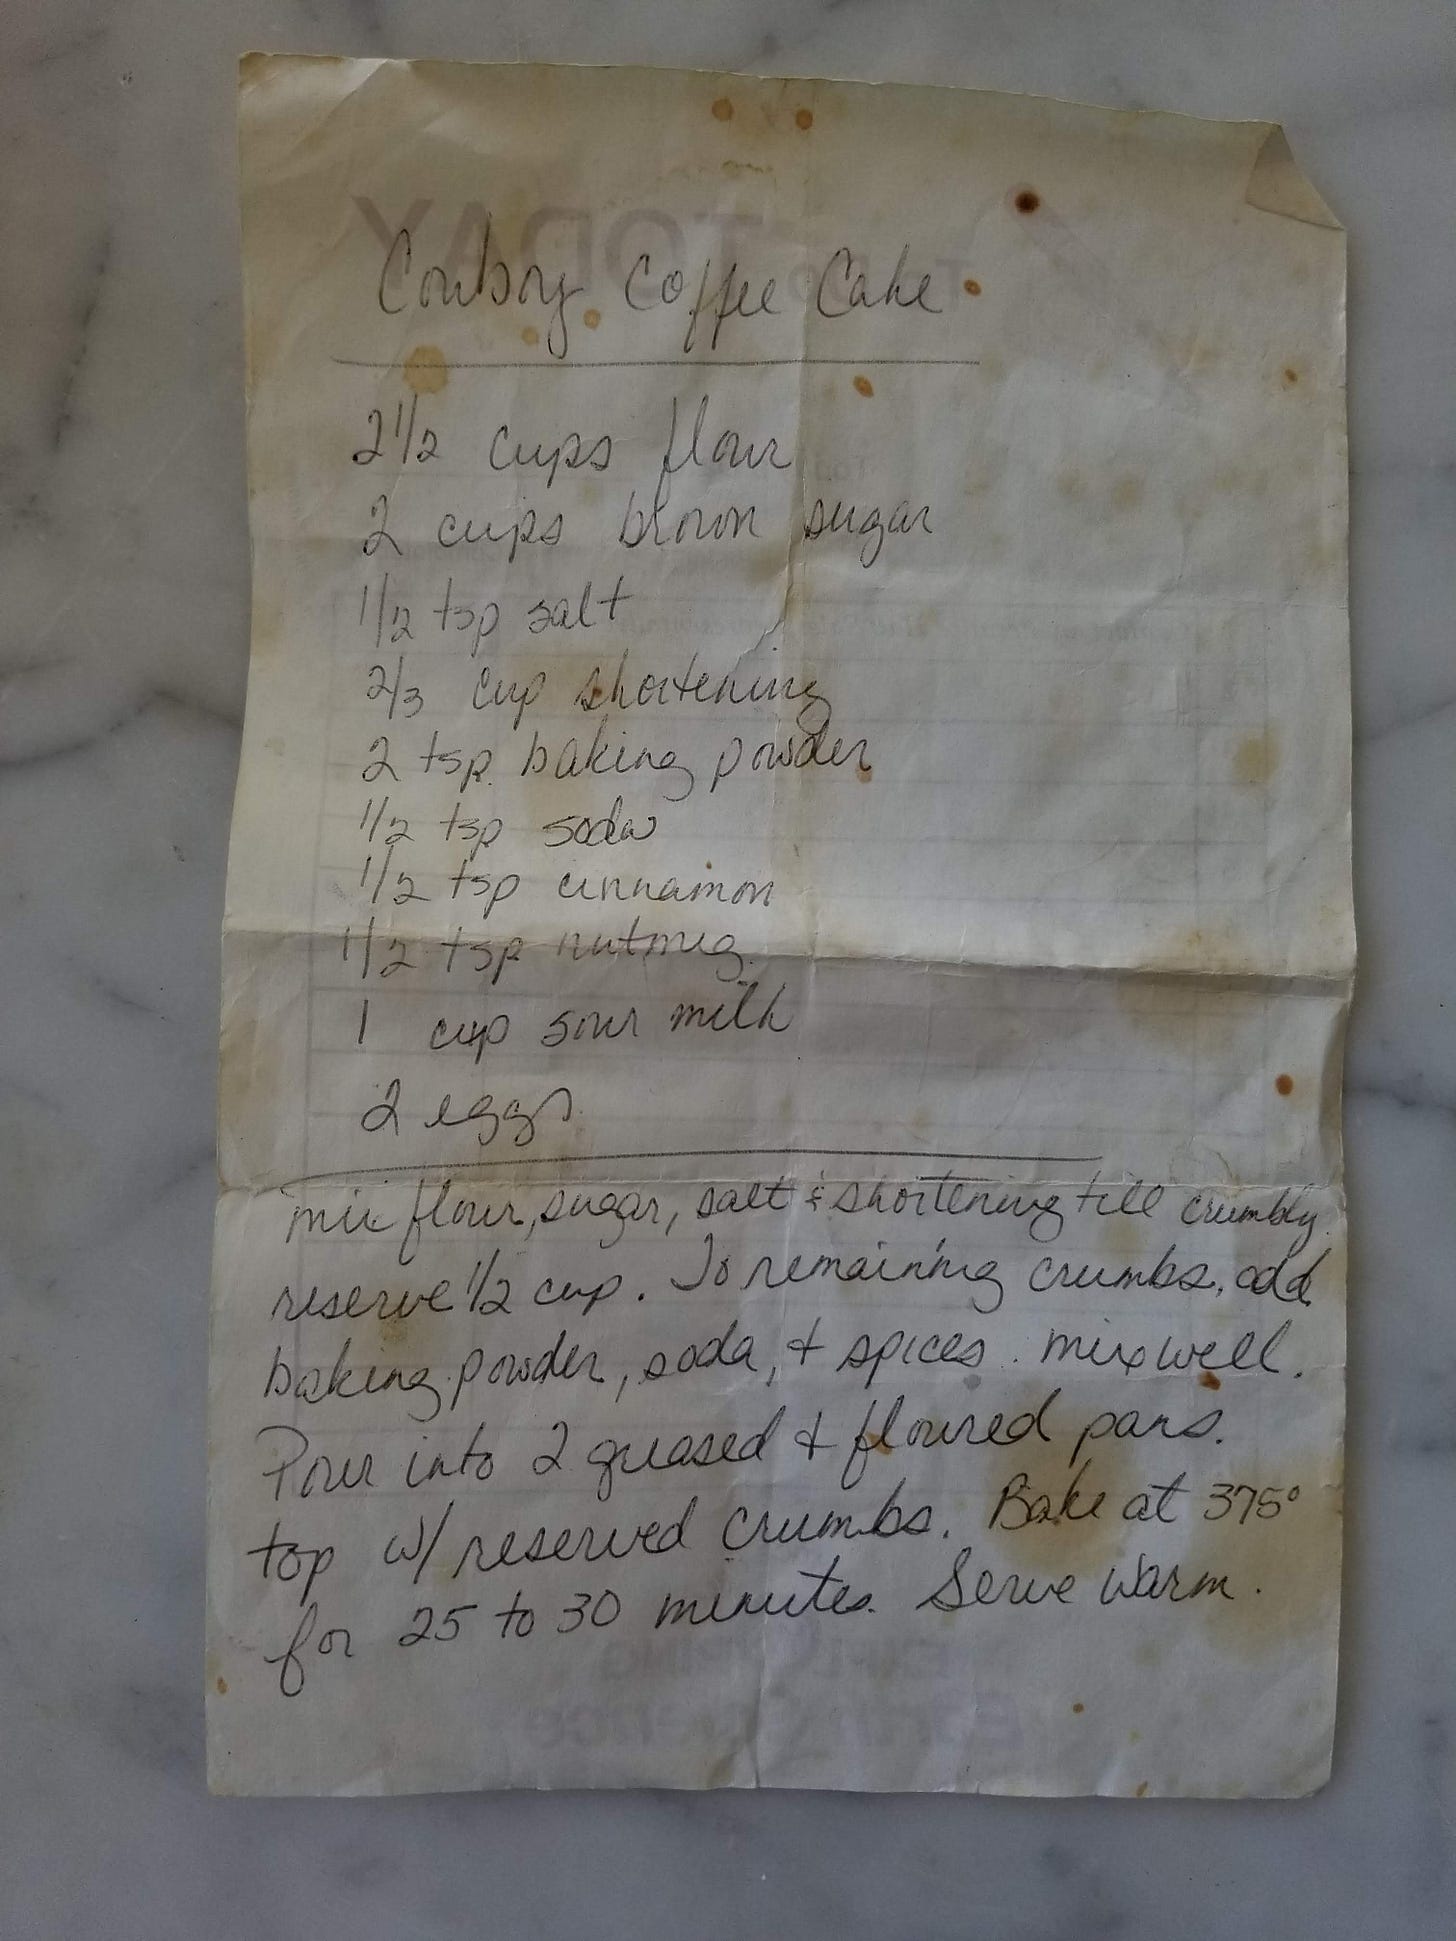 Cowboy Coffee Cake
2 1/2 cups flour
2 cups brown sugar
1/2 tsp salt
2/3 cup shortening
2 tsp. baking powder
1/2 tsp soda
1/2 tsp cinnamon
1/2 tsp nutmeg
1 cup sour milk
2 eggs
mix flour, sugar, salt & shortening till crumbly
reserve 1/2 cup. To remaining crumbs, add
baking powder, soda, + spices. mix well.
Pour into 2 greased + floured pans.
top w/ reserved crumbs. Bake at 375°
for 25 to 30 minutes. Serve warm.